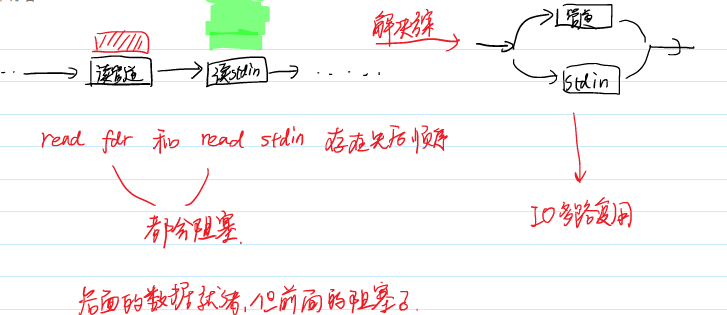 解决方案
管道
... 读管道 读stdin .....
stdin
read fdr 和 read stdin 存在先后顺序
都会阻塞.
IO多路复用
后面的数据就绪,但前面的阻塞了.